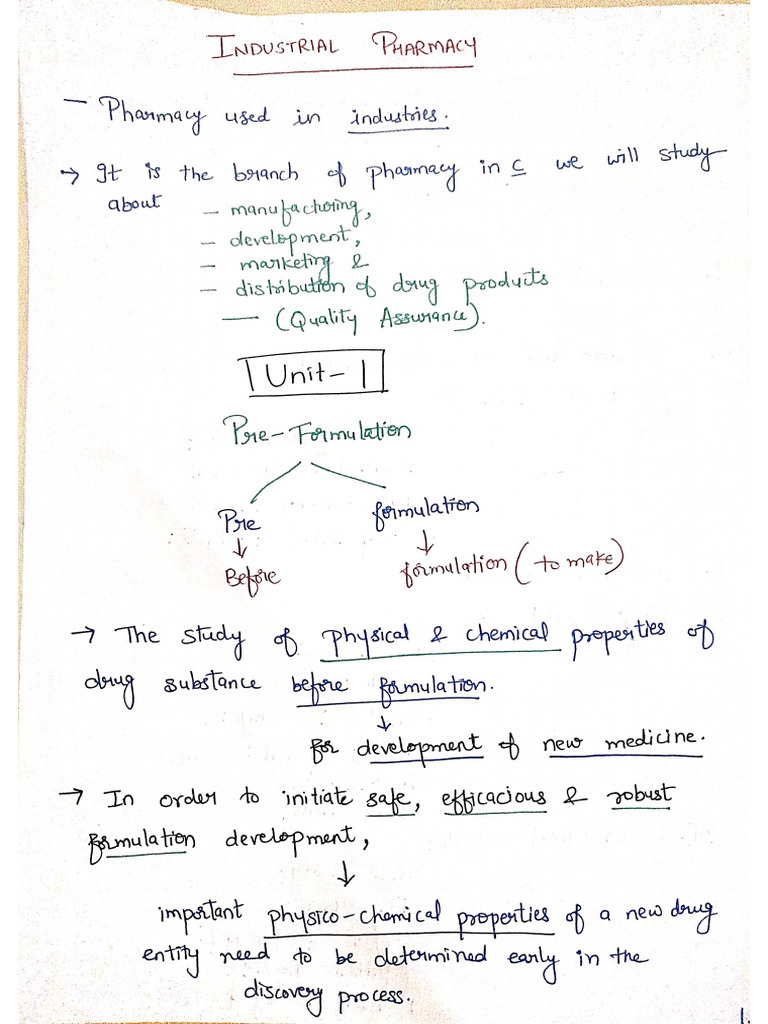 INDUSTRIAL PHARMACY
– Pharmacy used in industries.
→ It is the branch of pharmacy in c we will study
about – manufactoring,
– development,
– marketing &
– distribution of drug products
— (Quality Assurance).
Unit-1
Pre-Formulation
Pre formulation
↓ ↓
Before formulation (to make)
→ The study of physical & chemical properties of
drug substance before formulation.
↓
for development of new medicine.
→ In order to initiate safe, efficacious & robust
formulation development,
↓
important physico-chemical properties of a new drug
entity need to be determined early in the
discovery process.
1.